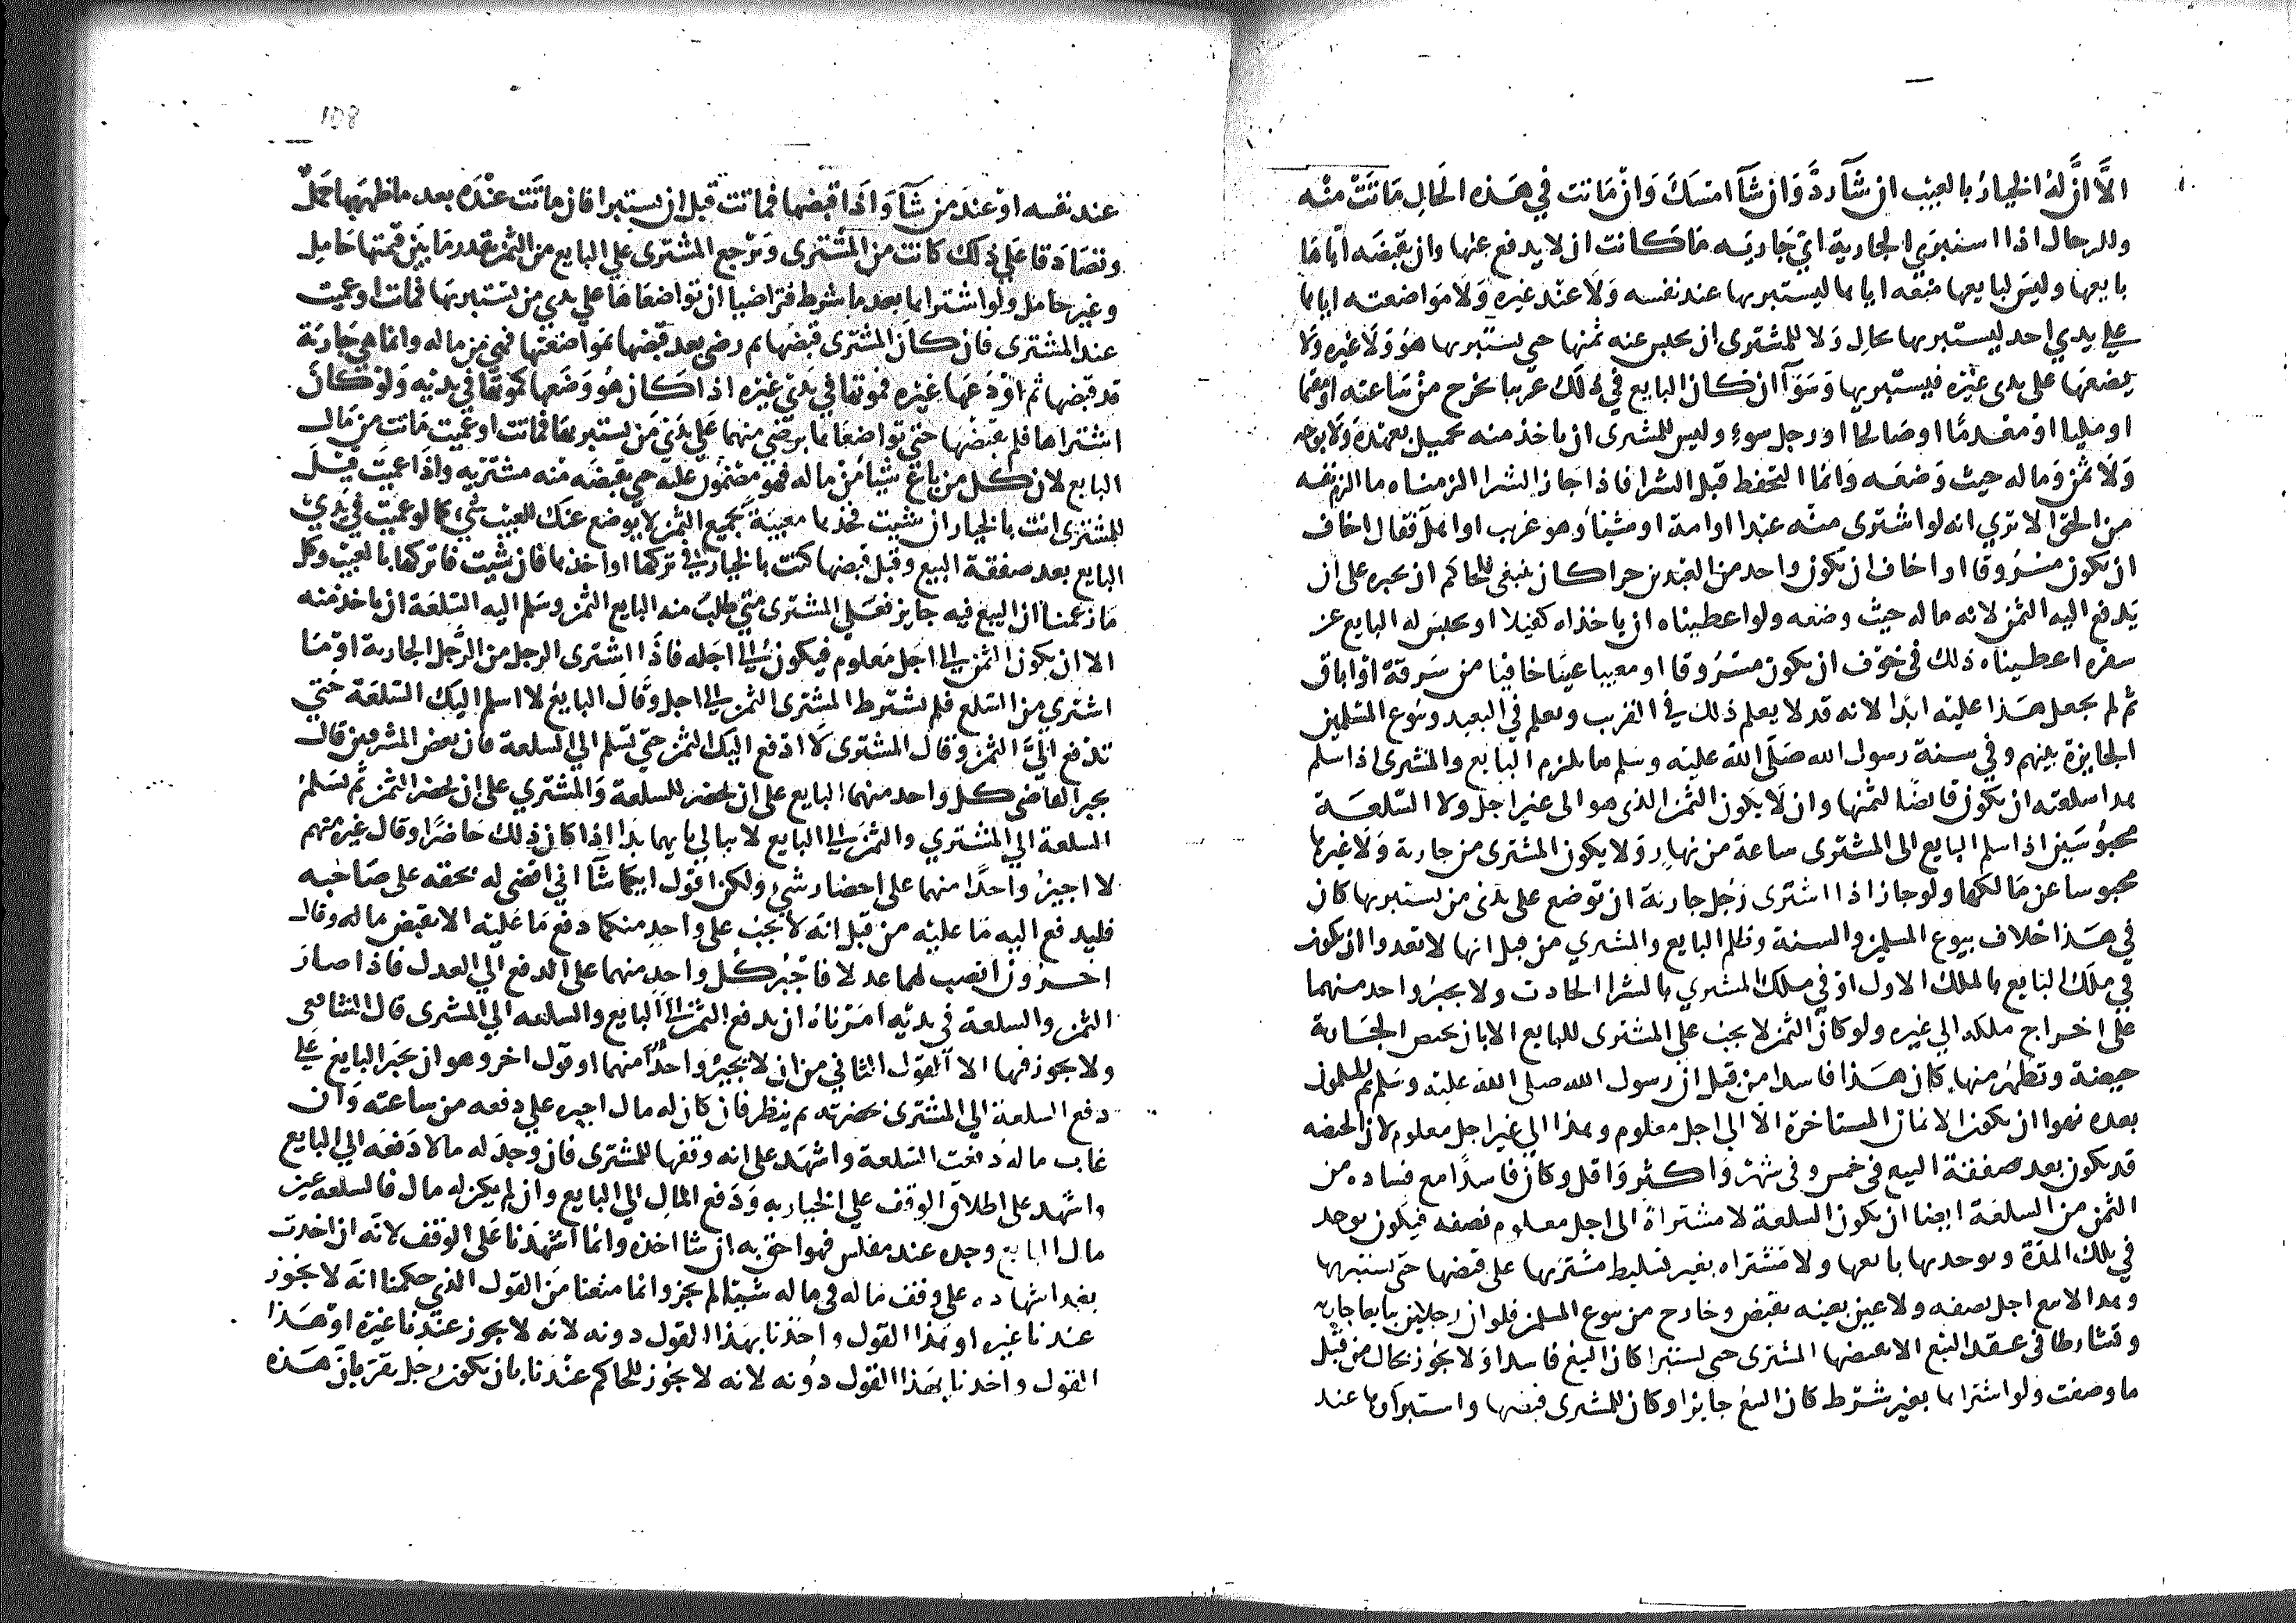 الا ان له الخيار بالعيب ان شآ رد وان شآ امسك وان ماتت في هذه الحال ماتت منه
وللرجال اذا استبرى الجارية اي جاريه ما كانت ان لا يدفع عنها وان يقبضه اياها
بايعها وليس لبايعها منعه اياها ليستبريها عند نفسه ولا عند غيره ولا مواضعته اياها
على يدي احد ليستبريها بحال ولا للمشترى ان يحبس عنه ثمنها حتى يستبريها هو ولا غيره ولا
يضعها على يدى غيره فيستبريها وسوآ ان كان البايع في ذلك غريبا يخرج من ساعته او مقيما
او مليا او معدما او صالحا او رجل سوء وليس للمشترى ان ياخذ منه حميلا بعهدة ولا بوجه
ولا ثمن وماله حيث وضعه وانما التحفظ قبل الشرا فاذا جاز الشرا الزمناه ما الزم نفسه
من الحق الا ترى انه لو اشترى منه عبدا او امة او شيئا وهو غريب او اهل فقال اخاف
ان يكون مسروقا او اخاف ان يكون واحد من العبدين حرا كان ينبغى للحاكم ان يجبره على ان
يدفع اليه الثمن لانه ماله حيث وضعه ولو اعطيناه ان ياخذ له كفيلا او يحبس له البايع عن
سفره اعطيناه ذلك في خوف ان يكون مسروقا او معيبا عيبا خافيا من سرقة او اباق
ثم لم يجعل هذا عليه ابدا لانه قد لا يعلم ذلك في القرب ويعلم في البعيد وبيوع المسلمين
الجايزة بينهم وفي سنة رسول الله صلى الله عليه وسلم ما يلزم البايع والمشترى اذا سلم
هذا سلعته ان يكون قابضا لثمنها وان لا يكون الثمن الذى هو الى غير اجل ولا السلعة
محبوسين اذا سلم البايع الى المشترى ساعة من نهار ولا يكون المشترى من جارية ولا غيرها
محبوسا عن مالكها ولو جاز اذا اشترى رجل جارية ان توضع على يدى من يستبريها كان
في هذا خلاف بيوع المسلمين والسنة وظلم البايع والمشتري من قبل انها لا تعدوا ان يكون
في ملك البايع بالملك الاول او في ملك المشتري بالشرا الحادث ولا يجبر واحد منهما
على اخراج ملكه الى غيره ولو كان الثمن لا يجب على المشترى للبايع الا بان تحيض الجارية
حيضة وتطهر منها كان هذا فاسدا من قبل ان رسول الله صلى الله عليه وسلم ثم المسلمون
بعده نهوا ان يكون الاثمان المستاخرة الا الى اجل معلوم وهذا الى غير اجل معلوم لان الحيضه
قد يكون بعد صفقة البيع في خمس وفي شهر واكثر واقل وكان فاسدا مع فساده من
الثمن من السلعة ايضا ان يكون السلعة لا مشتراة الى اجل معلوم نصفه فيكون يوجد
في تلك المدة ويوخذ بها بايعها ولا مشتراه بغير تسليط مشتريها على قبضها حتى يستبريها
وهذا لا بيع اجل بصفه ولا عين بعينه يقبض وخارج من بيوع المسلمين فلو ان رجلين تبايعا جاريه
وتشارطا في عقد البيع الا يقبضها المشترى حتى يستبرا كان البيع فاسدا ولا يجوز بحال من قبل
ما وصفت ولو اشتراها بغير شرط كان البيع جايزا وكان للمشترى قبضها واستبراوها عند
عند نفسه او عند من شآ واذا قبضها فماتت قبل ان يستبرا فان ماتت عنده بعد ما ظهر بها حمل
وتصادقا على ذلك كانت من المشترى ويرجع المشترى على البايع من الثمن بقدر ما بين قيمتها حامل
وغير حامل ولو اشتراها بعد ما شرط فتراضيا ان تواضعاها على يدي من يستبريها فماتت او عميت
عند المشترى فان كان المشترى قبضها ثم رضى بعد قبضها بمواضعتها فهى من ماله وانما هى جارية
قد قبضها ثم اودعها غيره فموتها في يدى غيره اذا كان هو وضعها كموتها في يديه ولو كان
اشتراها فلم يقبضها حتى تواضعاها برضى منهما على يدى من يستبريها فماتت او عميت ماتت من مال
البايع لان كل من باع شيئا من ماله فهو مضمون عليه حتى يقبضه منه مشتريه واذا عميت قيل
للمشترى انت بالخيار ان شيت فخذها معيبة بجميع الثمن لا يوضع عنك للعيب شي كما لو عميت في يدي
البايع بعد صفقة البيع وقبل قبضها كنت بالخيار في تركها او اخذها فان شيت فاتركها بالعيب وكل
ما زعمنا ان البيع فيه جايز فعلى المشترى متى طلب منه البايع الثمن وسلم اليه السلعة ان ياخذ منه
الا ان يكون الثمن الى اجل معلوم فيكون الى اجله فاذا اشترى الرجل من الرجل الجارية او ما
اشتري من السلع فلم يشترط المشترى الثمن الى اجل وقال البايع لا اسلم اليك السلعة حتي
تدفع الى الثمن وقال المشترى لا ادفع اليك الثمن حتى تسلم الى السلعة فان بعض المشرقين قال
يجبر القاضى كل واحد منهما البايع على ان يحضر السلعة والمشتري على ان يحضر الثمن ثم يسلم
السلعة الي المشتري والثمن الى البايع لا يبالى بايهما بدا اذا كان ذلك حاضرا وقال غيره منهم
لا اجبر واحدا منهما على احضار شي ولكن اقول ايكما شآ ان اقضى له بحقه على صاحبه
فليدفع اليه ما عليه من قبل انه لا يجب على واحد منكما دفع ما عليه الا بقبض ماله وقال
اخرون انصب لهما عدلا فاجبر كل واحد منهما على الدفع الي العدل فاذا صار
الثمن والسلعة في يديه امرناه ان يدفع الثمن الى البايع والسلعه الي المشترى قال الشافعى
ولا يجوز فيها الا القول الثاني من ان لا يجبر واحدا منهما او قول اخر وهو ان يجبر البايع على
دفع السلعة الي المشترى بحضرته ثم ينظر فان كان له مال اجبره علي دفعه من ساعته وان
غاب ماله دفعت السلعة واشهد على انه وقفها للمشترى فان وجد له مالا دفعه الي البايع
واشهد على اطلاق الوقف علي الجاريه ودفع المال الي البايع وان لم يكن له مال فالسلعة عين
مال البايع وجده عند مفلس فهو احق به ان شا اخذه وانما اشهدنا على الوقف لانه ان احدث
بعد اشهاده على وقف ماله في ماله شييا لم يجز وانما منعنا من القول الذي حكمنا انه لا يجوز
عندنا غيره او هذا القول واخذنا بهذا القول دونه لانه لا يجوز عندنا غيره او هذا
القول واخذنا بهذا القول دونه لانه لا يجوز للحاكم عندنا بان يكون رجل يقر بان هذه